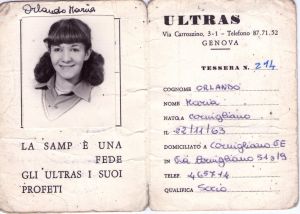 Orlando Maria
LA SAMP È UNA
FEDE
GLI ULTRAS I SUOI
PROFETI
ULTRAS
Via Carrozzino, 3-1 - Telefono 87.71.52
GENOVA
TESSERA N. 214
COGNOME ORLANDO
NOME MARIA
NATO A CORNIGLIANO
IL 22/11/63
DOMICILIATO A Cornigliano GE
IN VIA Cornigliano
TELEF. 465714
QUALIFICA Socio